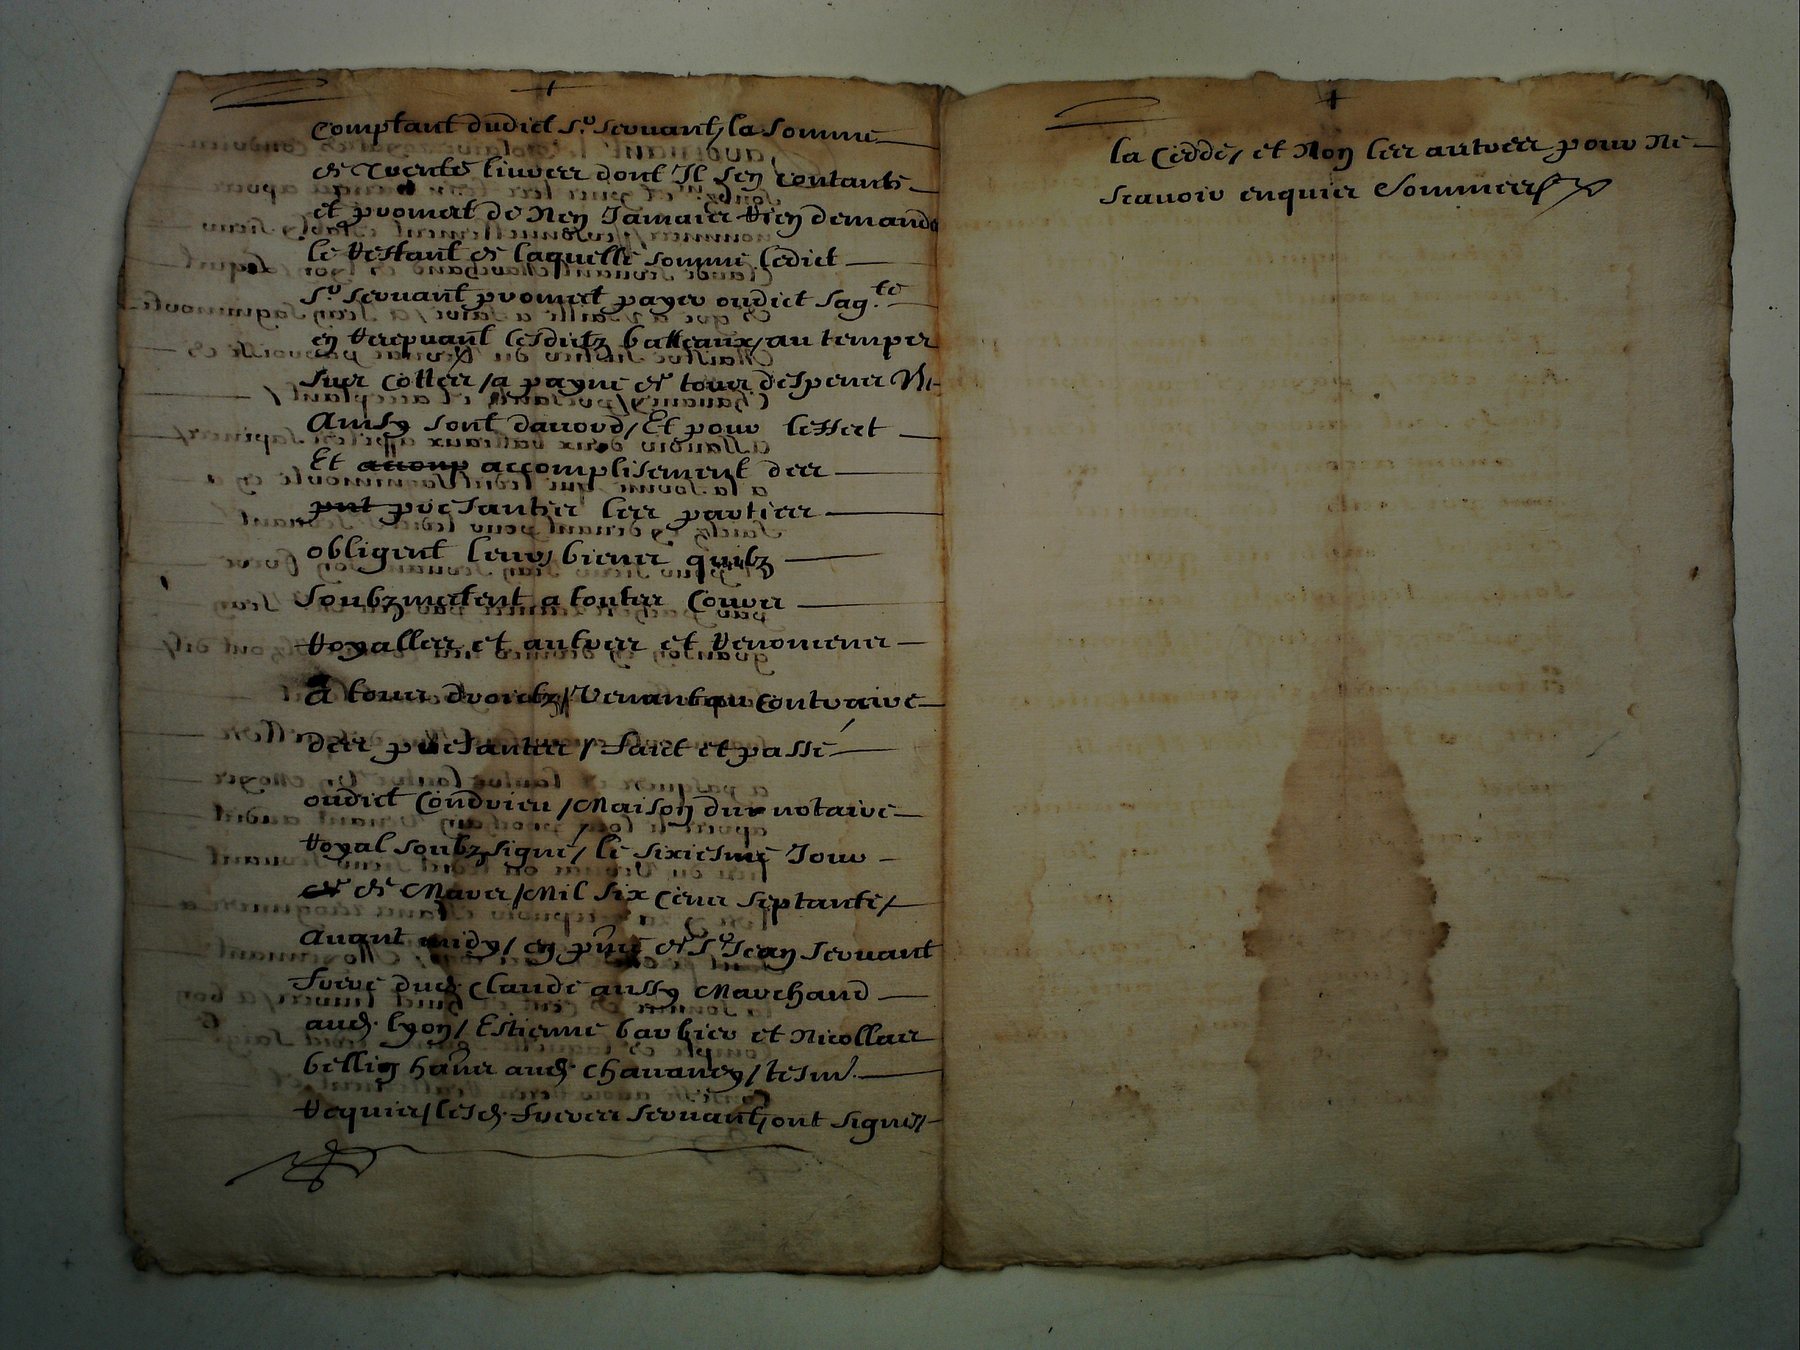 comptant dudict Sr. Servant, la somme
de trente livres dont Il sen contante
et promect de Nen Jamais rien demande
le restant de laquelle somme ledict
Sr. Servant promect payer oudict Sag.te
en recepvant lesdictz batteaux, au temps
sus cottes / a payne de tous despens
Ainsy sont daccord, Et pour leffect
Et accomp accomplisement des
pnt presantes les parties
obligent leurs biens quilz
soubzmectent a toutes Cours
royalles et autres et renoncent
A tous droictz / venant au contraire
des presantes / Faict et passé
oudict Condrieu / Maison du notaire
royal soubzsigné, le sixiesme Jour
de de Mars / Mil six Cens septante /
Avant midy, en pnce de Sr. Jean Servant
frere dud. Claude aussy Marchand
aud. lyon, Estienne barbier et Nicollas
bellin hans aud. chavaney / tesm.
requis / lesd. freres Servant, ont signés
la Cedde, et Non les autres pour Ne
scavoir enquis Sommes